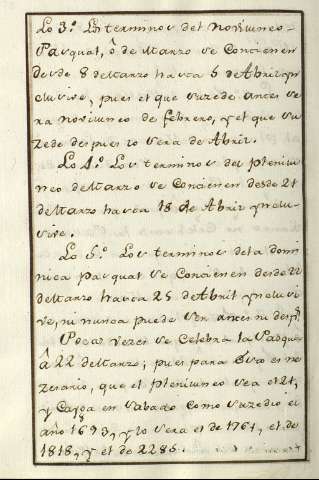 Lo 3º. Los terminos del noviluneo
Pasqual, ô de Marzo se Contienen
desde 8 de Marzo hasta 5 de Abril yn
clusive, pues el que suzede antes se
ra noviluneo de febrero, y el que su
zede despues lo sera de Abril.
Lo 4º. Los terminos del pleniluu
neo de Marzo se Contienen desde 21
de Marzo hasta 18 de Abril ynclu-
sive.
Lo 5º. Los terminos de la domi
nica pasqual se Contienen desde 22
de Marzo hasta 25 de Abril ynclusi
ve, ni nunca puede ser antes ni desps.
Pocas vezes se Celebra la Pasqua
â 22 de Marzo; pues para Esto es ne
zesario, que el pleniluneo sea el 21,
y Cayga en Sabado como suzedio el
año 1693, y lo sera el de 1761, el de
1818, y el de 2285.